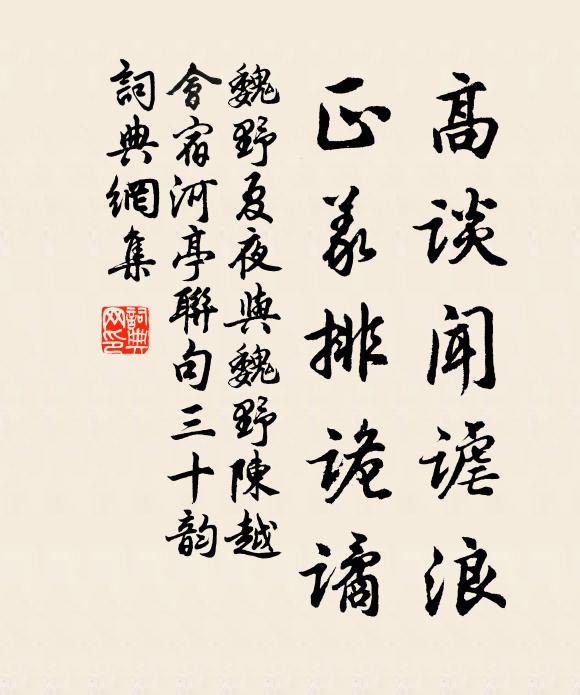 高談聞謔浪
正義排詭譎
魏野夏夜與魏野陳越
會宿河亭聯句三十韵
詞典網集
詞典
网印